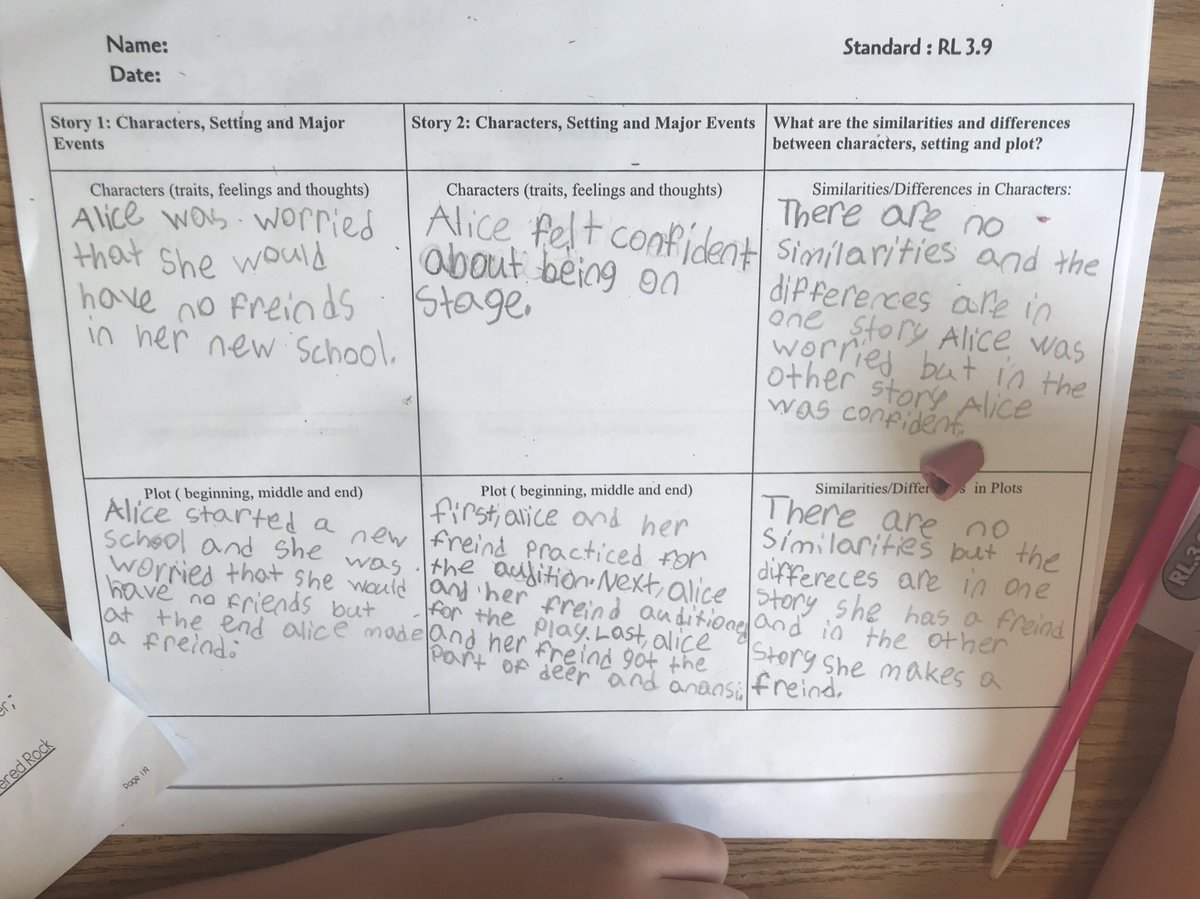 Name:
Date:
Standard : RL 3.9
Story 1: Characters, Setting and Major
Events
Story 2: Characters, Setting and Major Events
What are the similarities and differences
between characters, setting and plot?
Characters (traits, feelings and thoughts)
Alice was worried
that she would
have no freinds
in her new school.
Characters (traits, feelings and thoughts)
Alice felt confident
about being on
stage.
Similarities/Differences in Characters:
There are no
similarities and the
differences are in
one story Alice was
worried but in the
other story Alice
was confident.
Plot ( beginning, middle and end)
Alice started a new
school and she was
worried that she would
have no friends but
at the end alice made
a freind.
Plot ( beginning, middle and end)
first, alice and her
freind practiced for
the audition. Next, alice
and her freind auditioned
for the play. Last, alice
and her freind got the
part of deer and anansi.
Similarities/Differ s in Plots
There are no
similarities but the
differeces are in one
story she has a freind
and in the other
story she makes a
freind.
er,
ered Rock
Page 19
RL.3.9